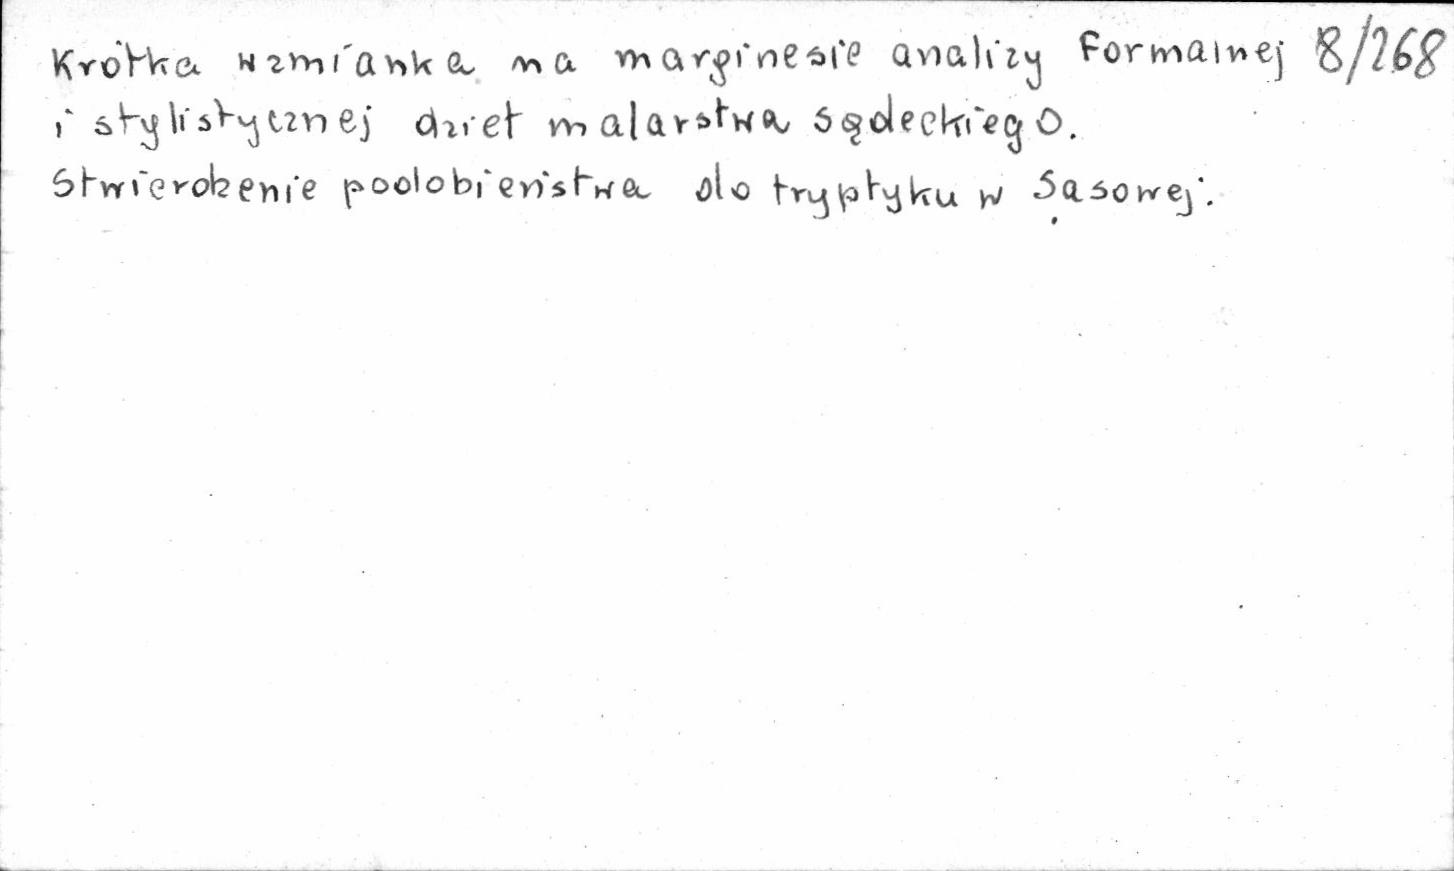 Krótka wzmianka na marginesie analizy formalnej 8/268
i stylistycznej dzieł malarstwa sądeckiego.
Stwierdzenie podobieństwa do tryptyku w Sąsowej.